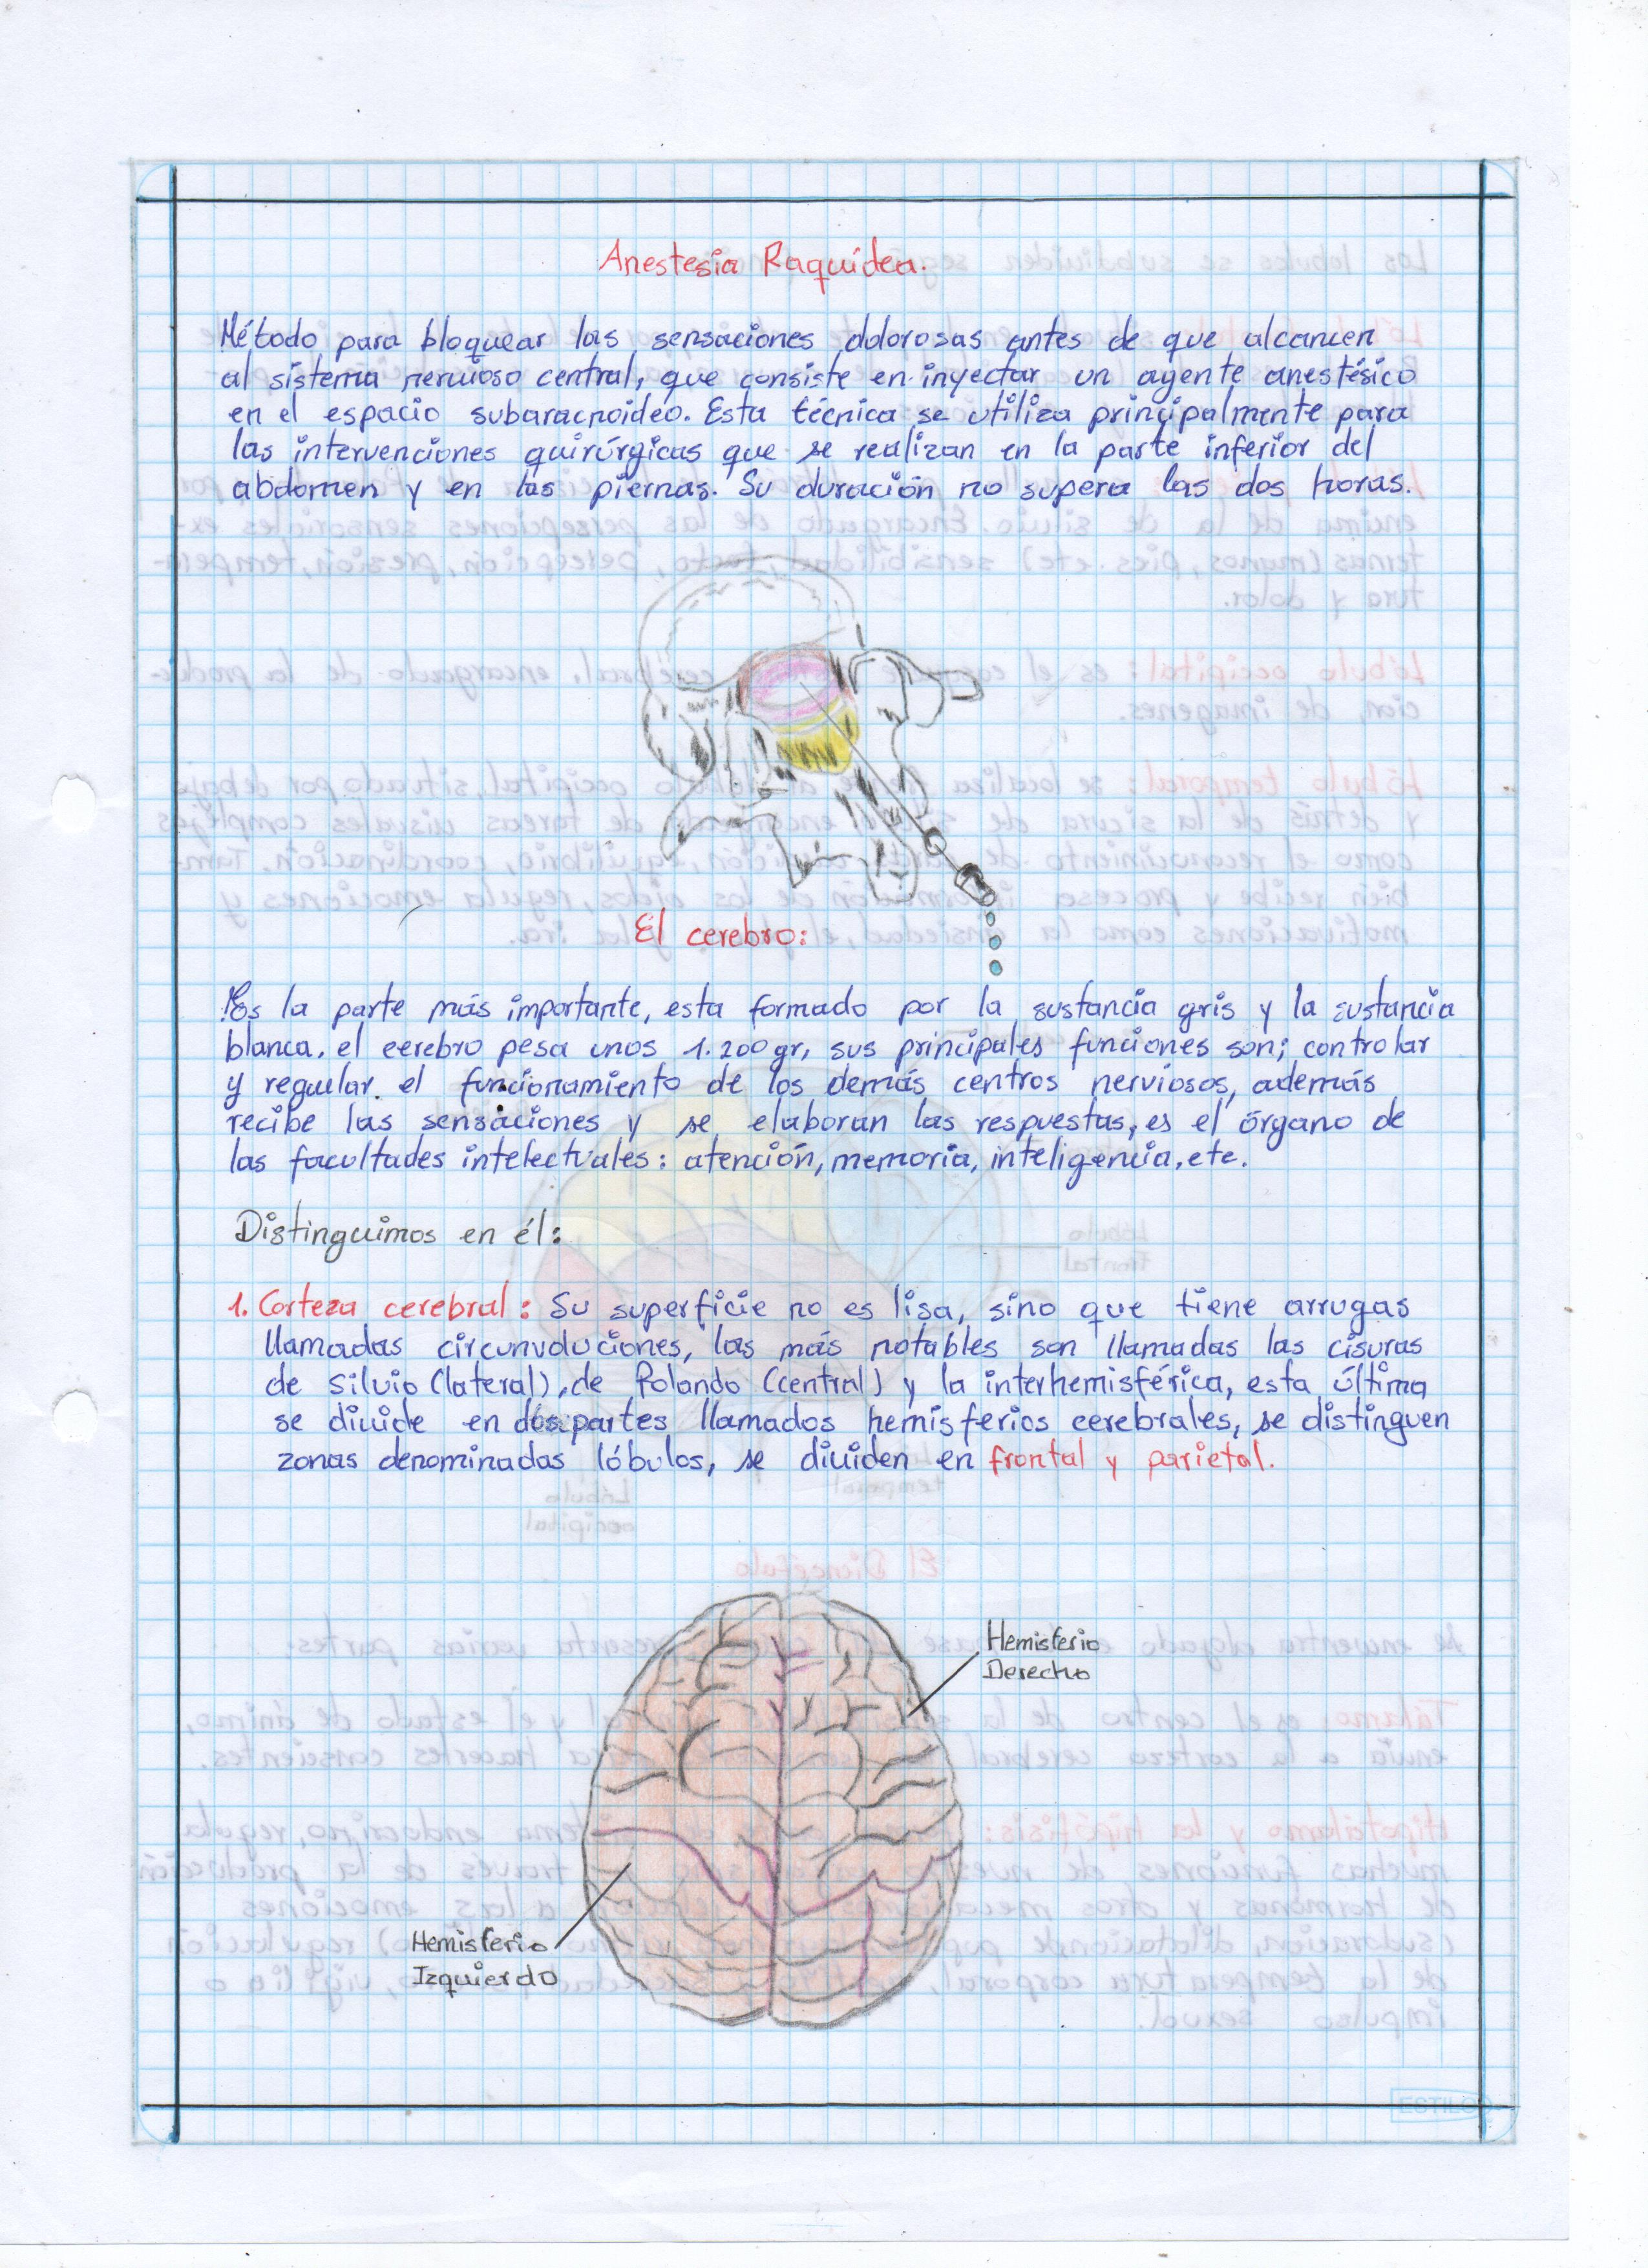 Anestesia Raquídea.
Método para bloquear las sensaciones dolorosas antes de que alcancen
al sistema nervioso central, que consiste en inyectar un agente anestésico
en el espacio subaracnoideo. Esta técnica se utiliza principalmente para
las intervenciones quirúrgicas que se realizan en la parte inferior del
abdomen y en las piernas. Su duración no supera las dos horas.
El cerebro:
Es la parte más importante, esta formado por la sustancia gris y la sustancia
blanca. el cerebro pesa unos 1.200 gr, sus principales funciones son; controlar
y regular el funcionamiento de los demás centros nerviosos, además
recibe las sensaciones y se elaboran las respuestas, es el órgano de
las facultades intelectuales: atención, memoria, inteligencia, etc.
Distinguimos en él:
1. Corteza cerebral: Su superficie no es lisa, sino que tiene arrugas
llamadas circunvoluciones, las más notables son llamadas las cisuras
de Silvio (lateral), de Rolando (central) y la interhemisférica, esta última
se divide en dos partes llamados hemisferios cerebrales, se distinguen
zonas denominadas lóbulos, se dividen en frontal y parietal.
Hemisferio
Derecho
Hemisferio
Izquierdo
ESTILO